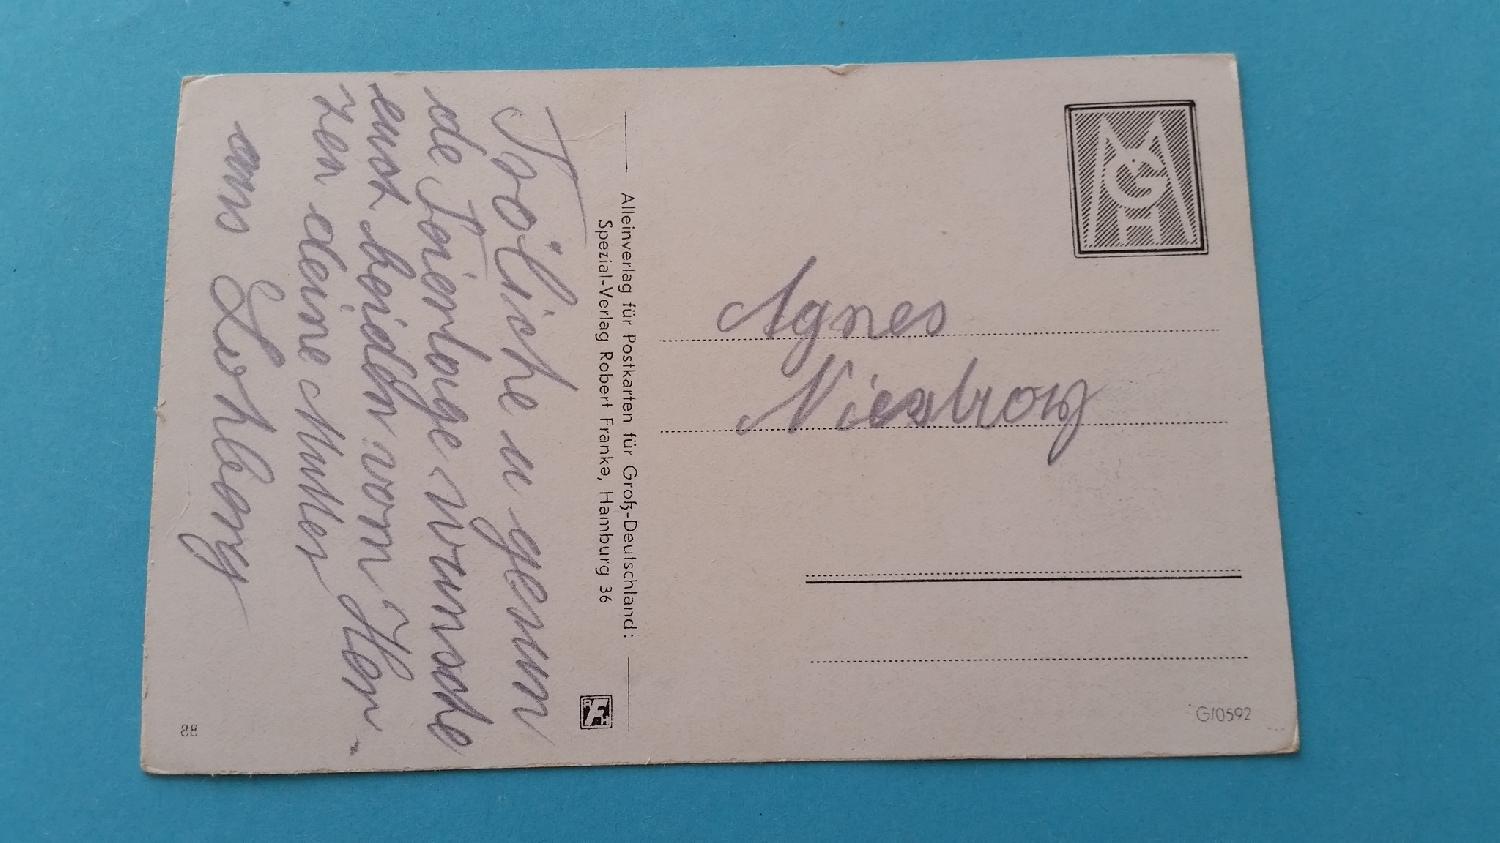 Fröliche u gesun
de Feiertage wunsche
euch beiden vom Her-
zen deine Mutter
aus
Alleinverlag für Postkarten für Groß-Deutschland:
Spezial-Verlag Robert Franke, Hamburg 36
MGH
Agnes
G10592
88